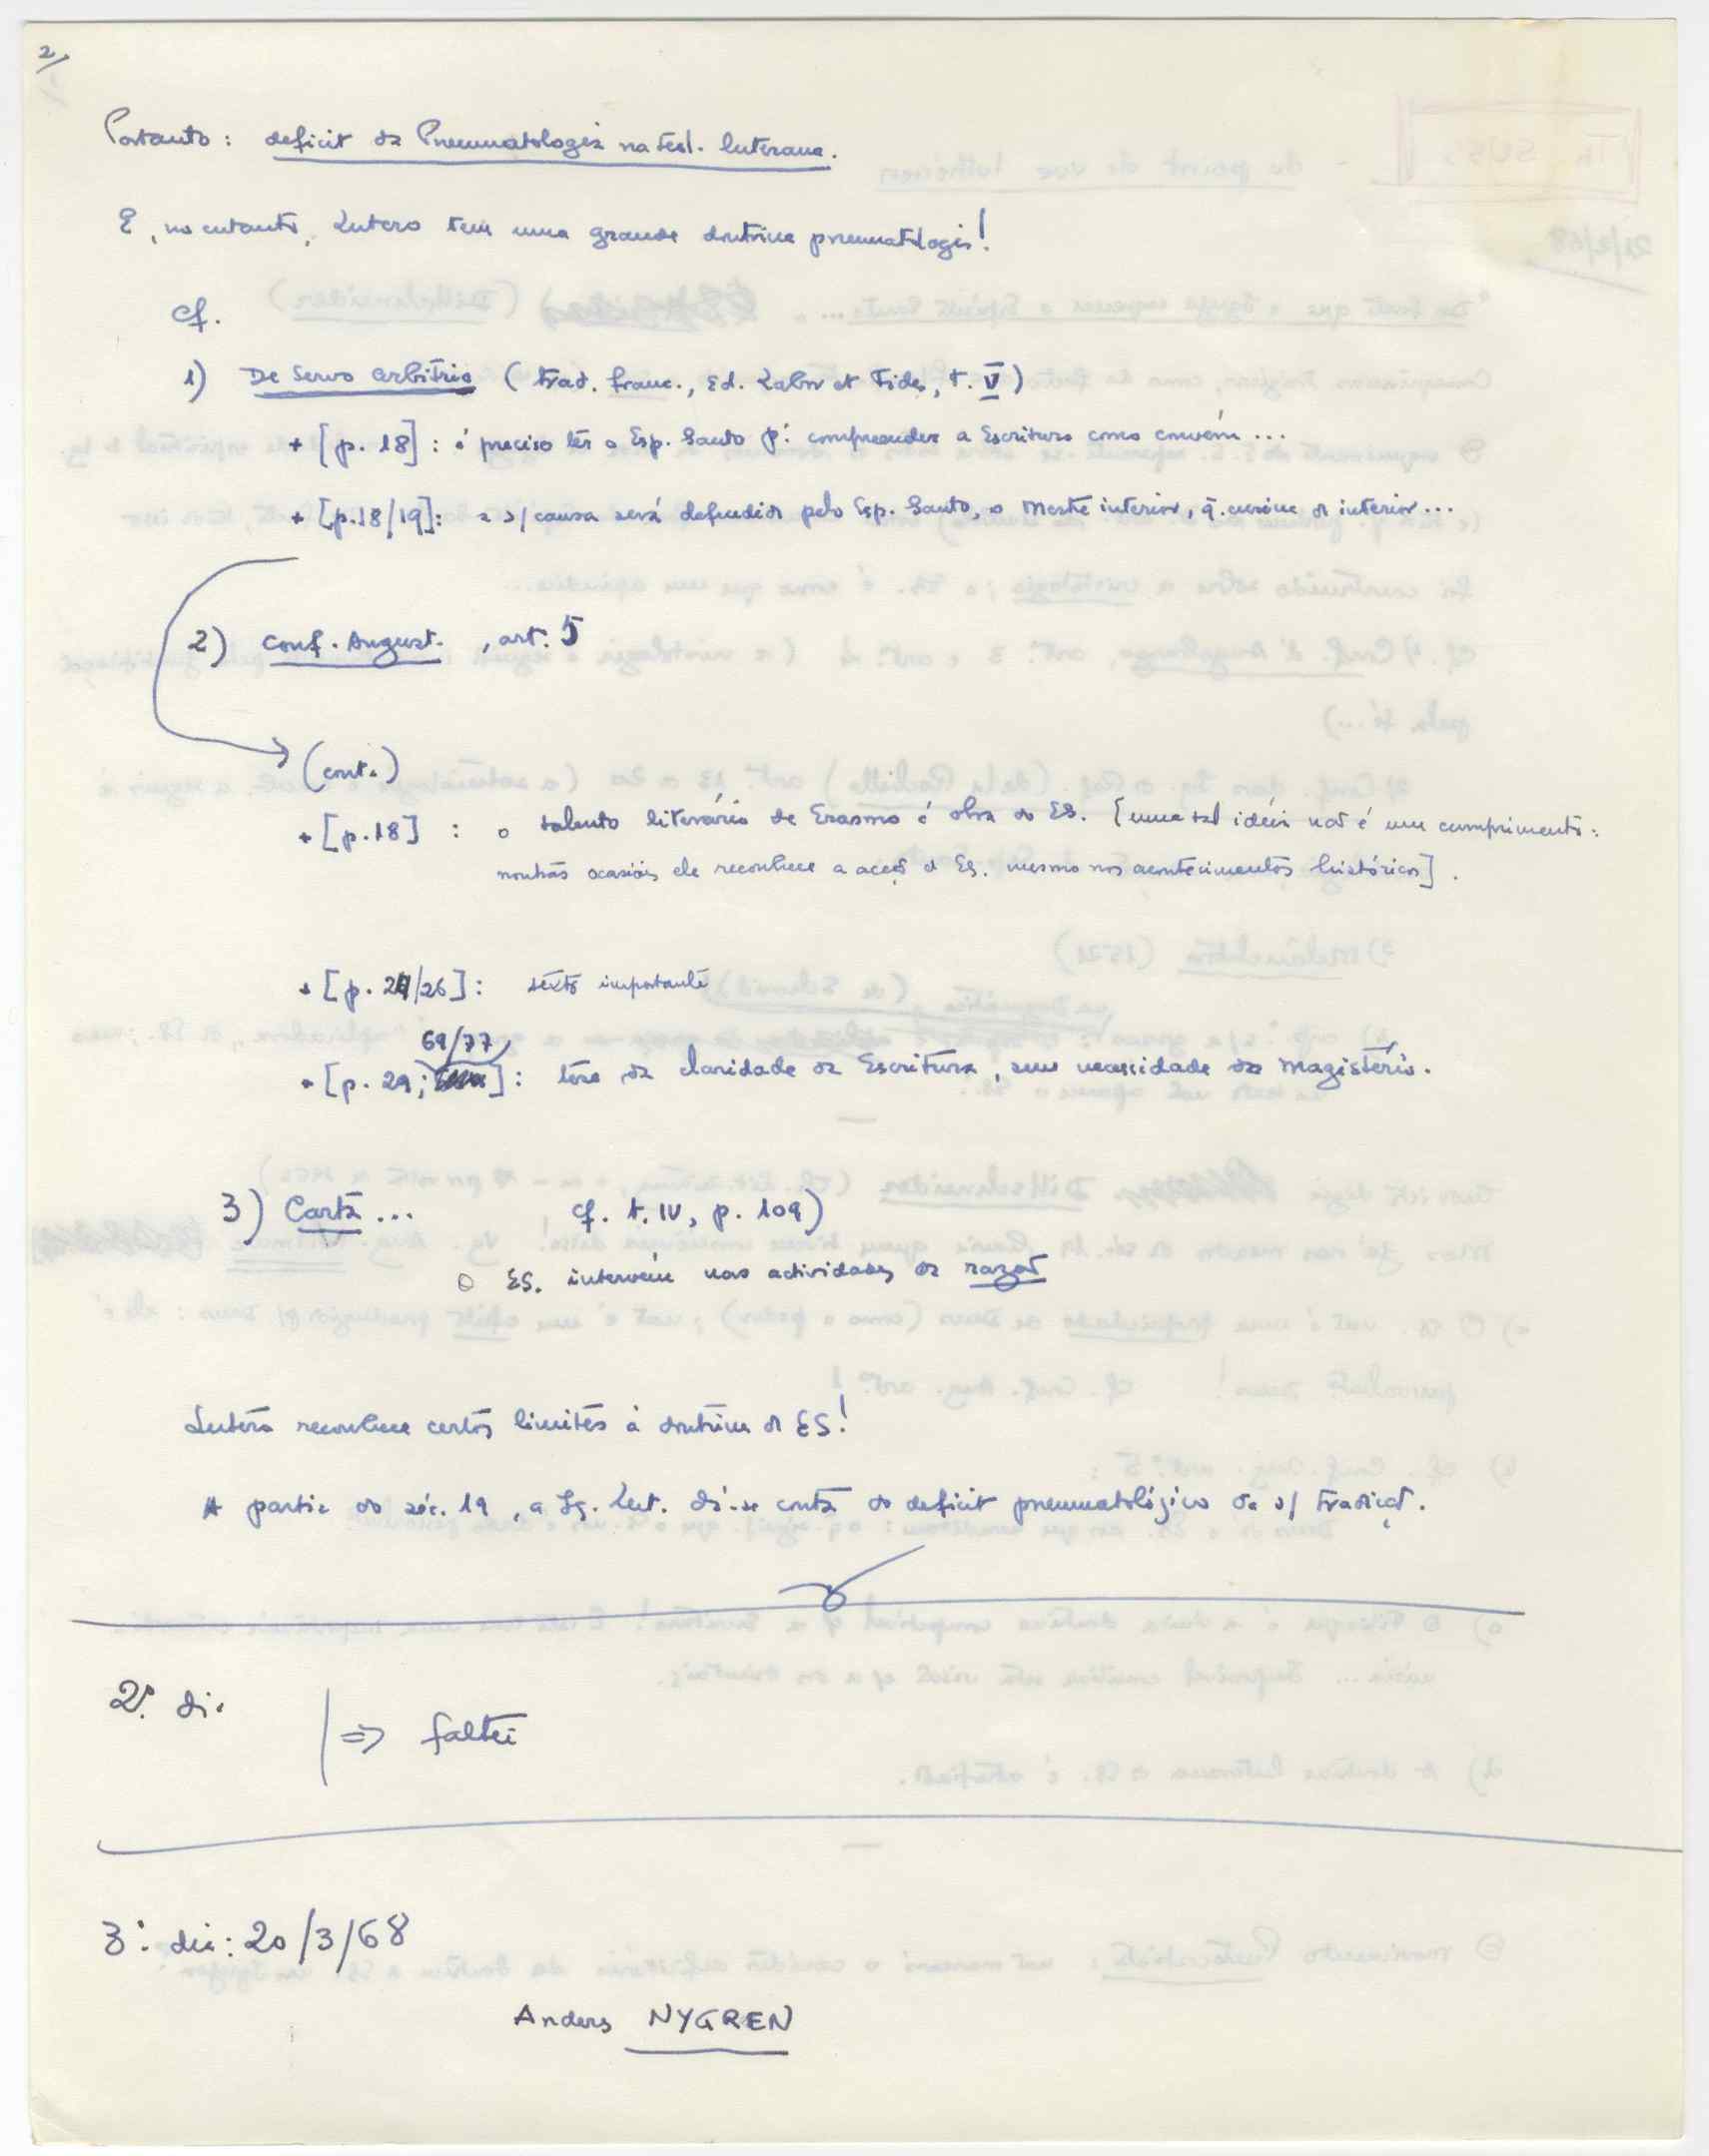 2/
Portanto: deficit da Pneumatologia na teol. luterana.
E, no entanto, Lutero tem uma grande doutrina pneumatologia!
cf.
1) De Servo arbitrio (trad. franc., Ed. Labor et Fides, t. V)
+ [p. 18]: é preciso ter o Esp. Santo p.ª compreender a Escritura como convém...
+ [p.18/19]: a s/ causa será defendida pelo Esp. Santo, o Mestre interior, q. ensina o interior...
2) Conf. August., art. 5
(cont.)
+ [p.18] : o talento literário de Erasmo é obra do ES. [uma tal ideia não é um cumprimento:
noutras ocasiões ele reconhece a acção do ES. mesmo nos acontecimentos históricos].
+ [p. 24/26]: texto importante
69/77
+ [p. 29; ]: tese da claridade da Escritura, sem necessidade do Magistério.
3) Carta... cf. t. IV, p. 109)
O ES. intervém nas actividades da razão
Lutero reconhece certos limites à doutrina do ES!
A partir do séc. 19, a Ig. Lut. dá-se conta do deficit pneumatológico da s/ Tradição.
2.º dia
|=> faltei
3.º dia: 20/3/68
Anders NYGREN